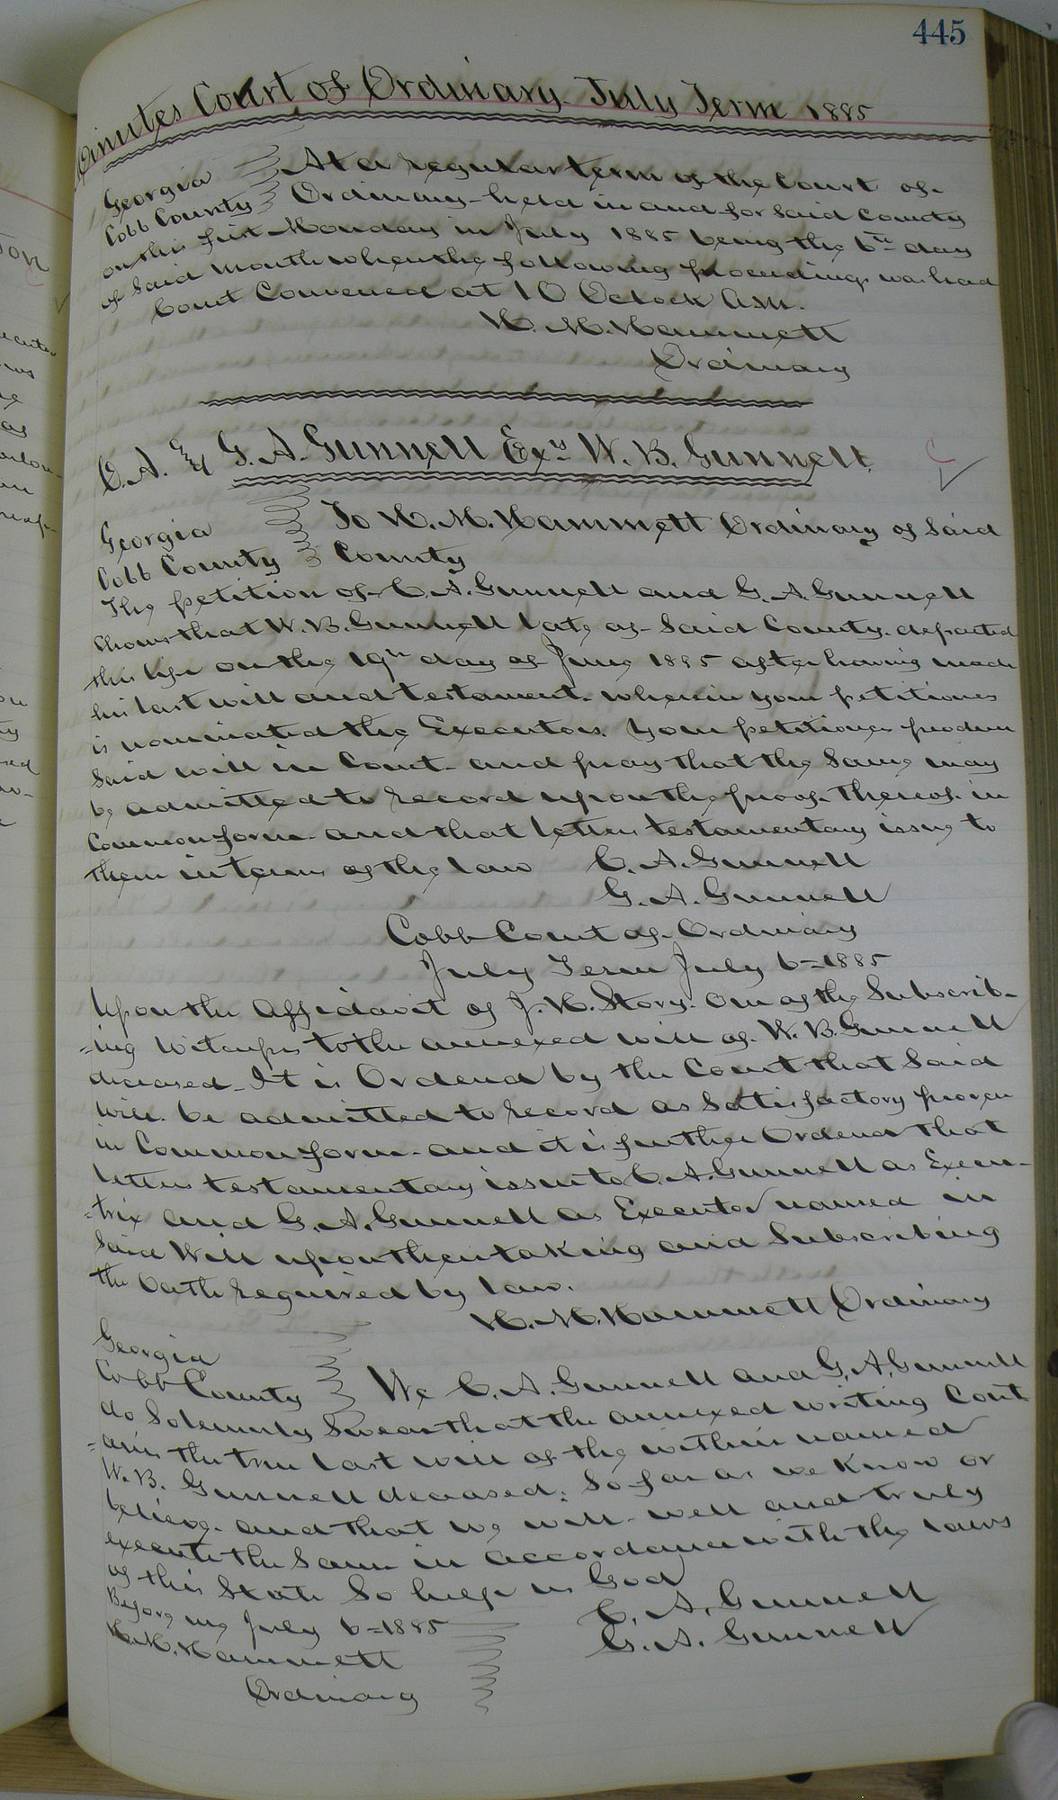 445
Minutes Court of Ordinary July Term 1885
Georgia At a regular term of the Court of
Cobb County Ordinary held in and for said County
on this first Monday in July 1885 being the 6th day
of said Month when the following proceedings was had
Court Convened at 10 Oclock A.M.
H. M. Hammett
Ordinary
C. A. & G. A. Gunnell Exrs W. B. Gunnell
Georgia To H. M. Hammett Ordinary of said
Cobb County County
The petition of C. A. Gunnell and G. A. Gunnell
Shows that W. B. Gunnell late of said County departed
this life on the 19th day of June 1885 after having made
his last will and testament wherein your petitioners
is nominated the Executors. Your petitioners produce
said will in Court and pray that the same may
be admitted to record upon the proof thereof in
Common form and that letters testamentary issue to
them in terms of the law C. A. Gunnell
G. A. Gunnell
Cobb Court of Ordinary
July Term July 6=1885
Upon the affidavit of J. H. Story. One of the Subscrib-
=ing Witnesses to the annexed will of W. B. Gunnell
deceased It is Ordered by the Court that said
will be admitted to record as Satisfactory proven
in Common form and it is further Ordered that
letters testamentary issue to C. A. Gunnell as Execu-
=trix and G. A. Gunnell as Executor named in
said Will upon their taking and Subscribing
the Oath required by law.
H. M. Hammett Ordinary
Georgia
Cobb County We C. A. Gunnell and G. A. Gunnell
do Solemnly Swear that the annexed writing Cont
=ains the true last will of the within named
W. B. Gunnell deceased; So far as we know or
believe and that we will well and truly
execute the same in accordance with the laws
of this State So help us God
Before me July 6=1885 C. A. Gunnell
H. M. Hammett G. A. Gunnell
Ordinary